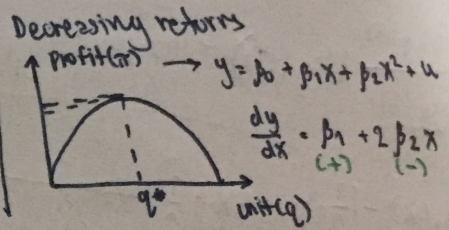 Decreasing returns
Profit(π) → y = β₀ + β₁x + β₂x² + u
dy/dx = β₁ + 2β₂x
(+) (-)
q*
unit(q)